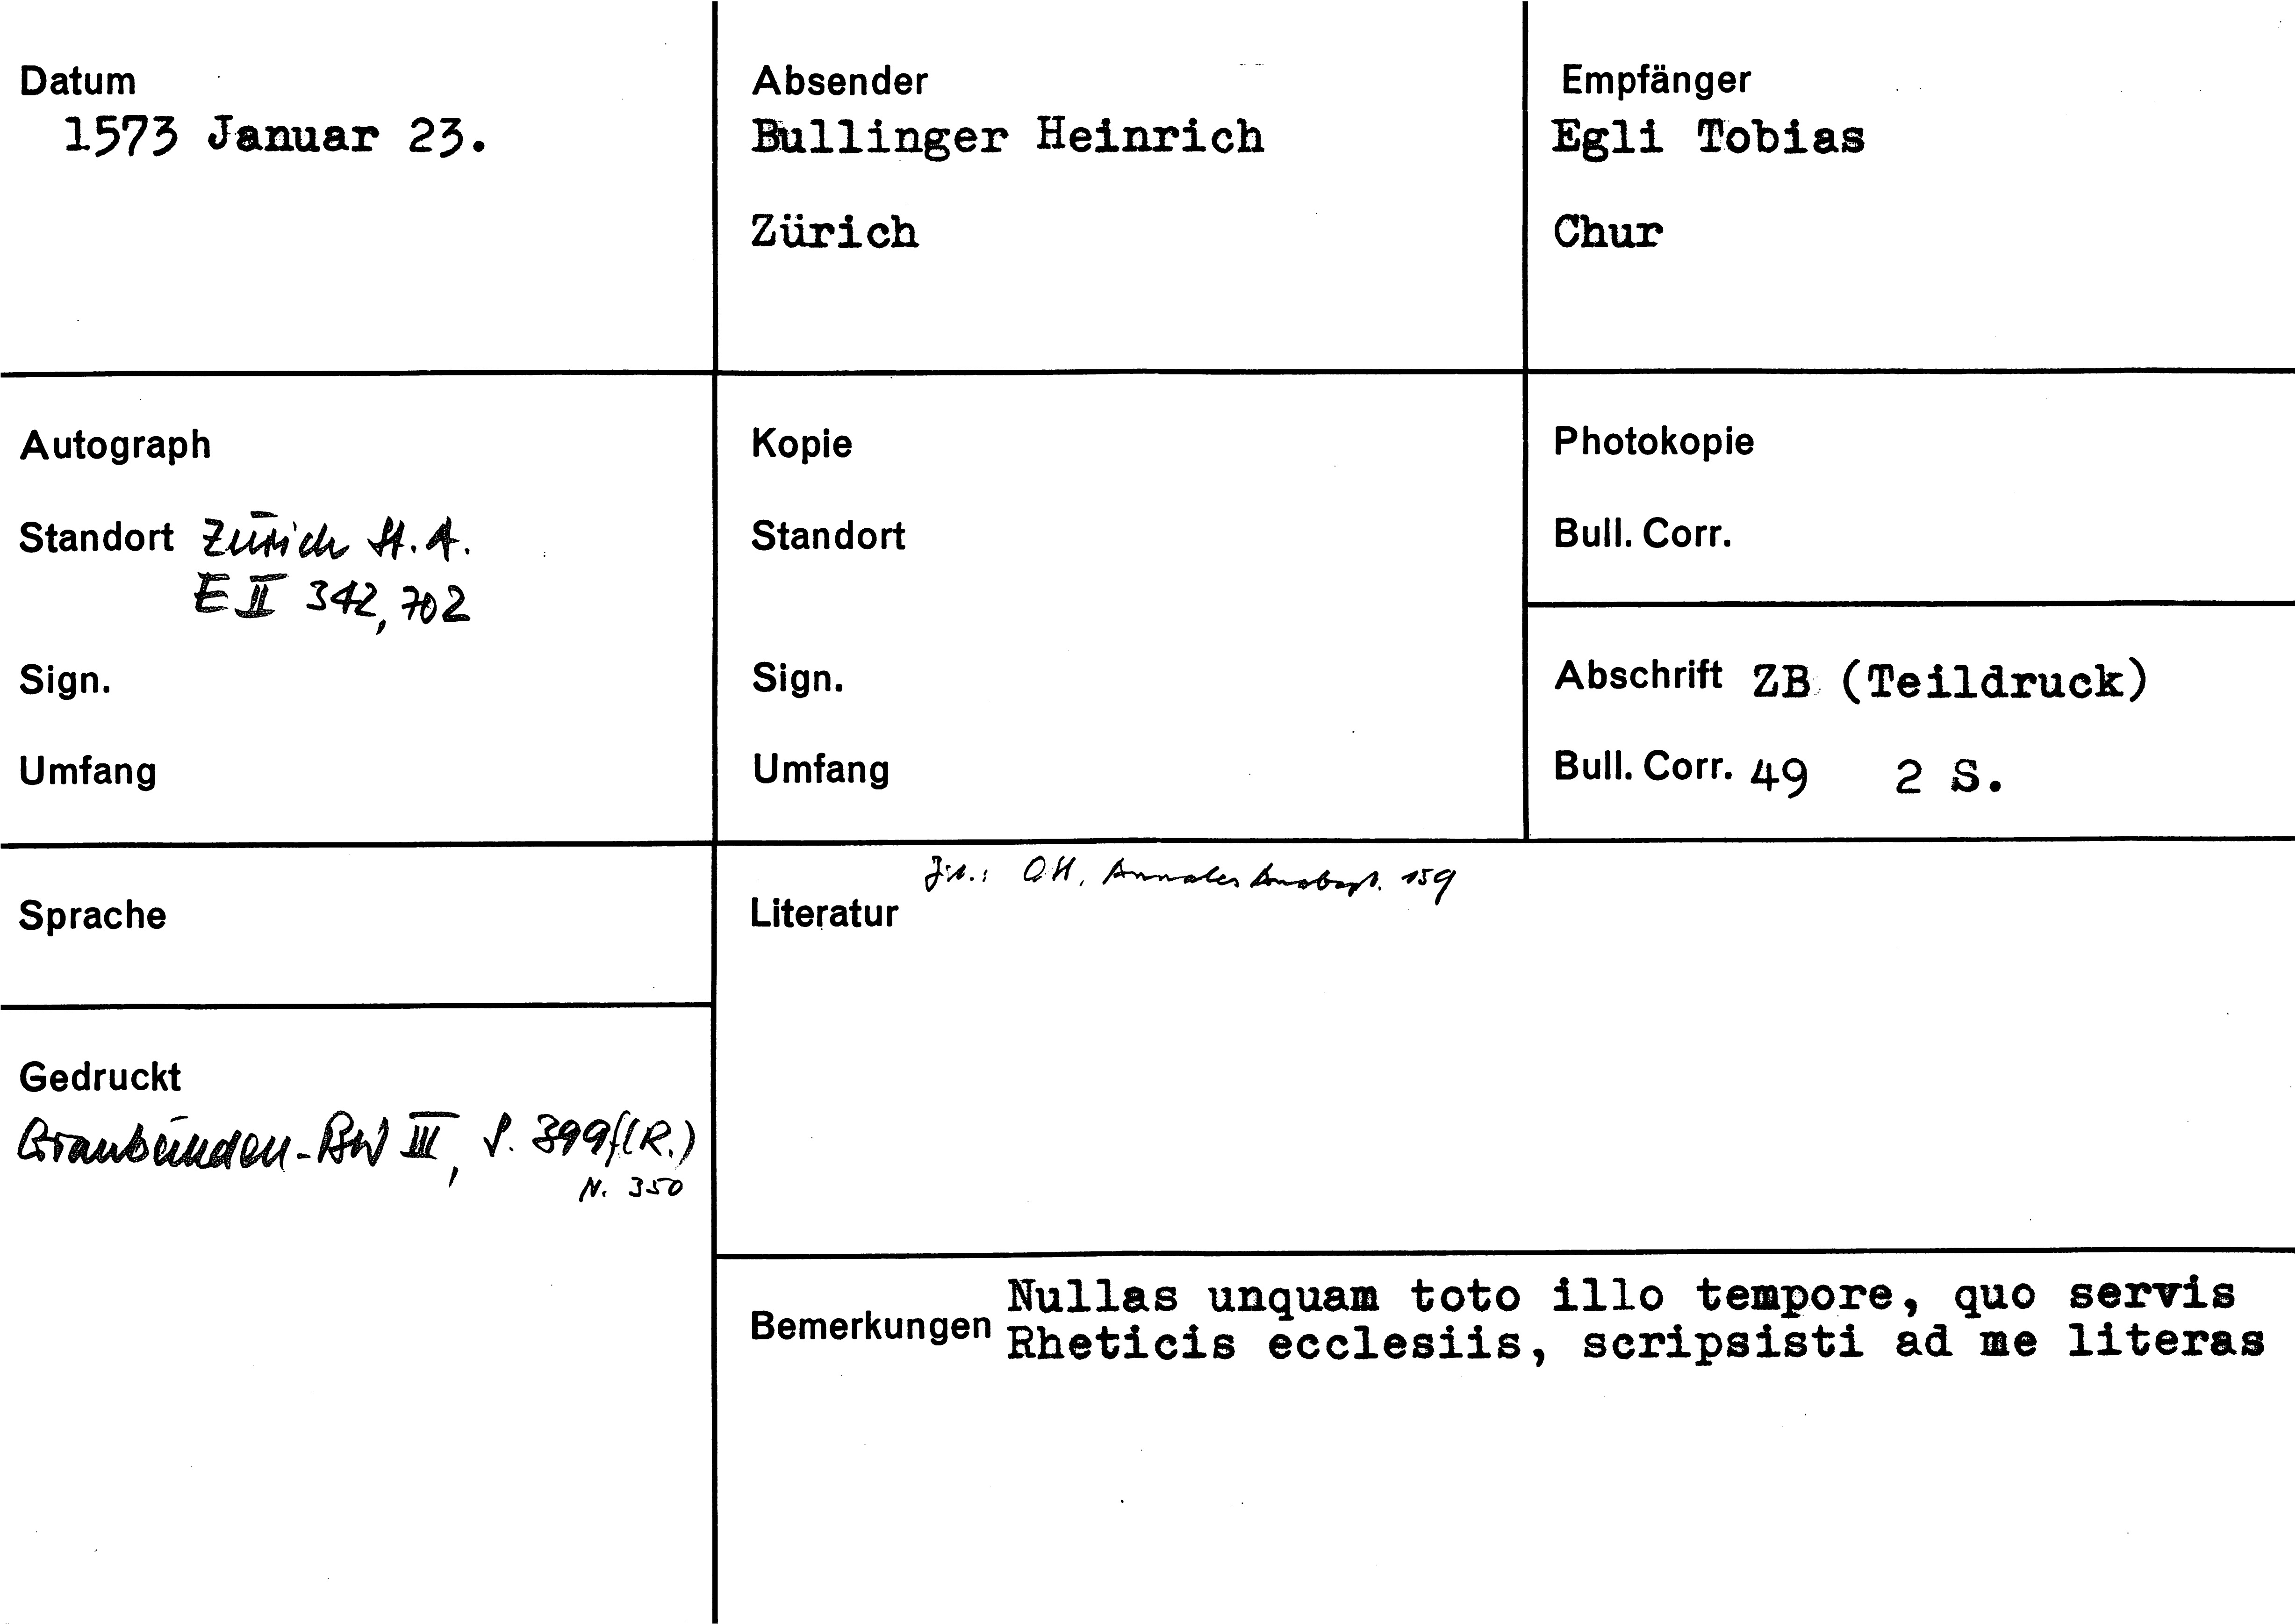 Datum
1573 Januar 23.
Absender
Bullinger Heinrich
Zürich
Empfänger
Egli Tobias
Chur
Autograph
Standort Zürich St. A.
E II 342, 702
Sign.
Umfang
Kopie
Standort
Sign.
Umfang
Photokopie
Bull. Corr.
Abschrift ZB (Teildruck)
Bull. Corr. 49 2 S.
Sprache
Gedruckt
Graubünden-BW III, S. 399f (R.)
N. 350
Annales Anabapt. 159
Literatur
Bemerkungen
Nullas unquam toto illo tempore, quo servis
Rheticis ecclesiis, scripsisti ad me literas